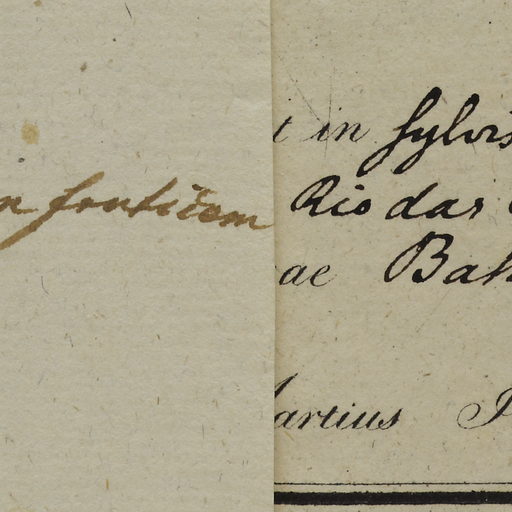 fruticem
in sylvis
Rio das
ae Bah
artius